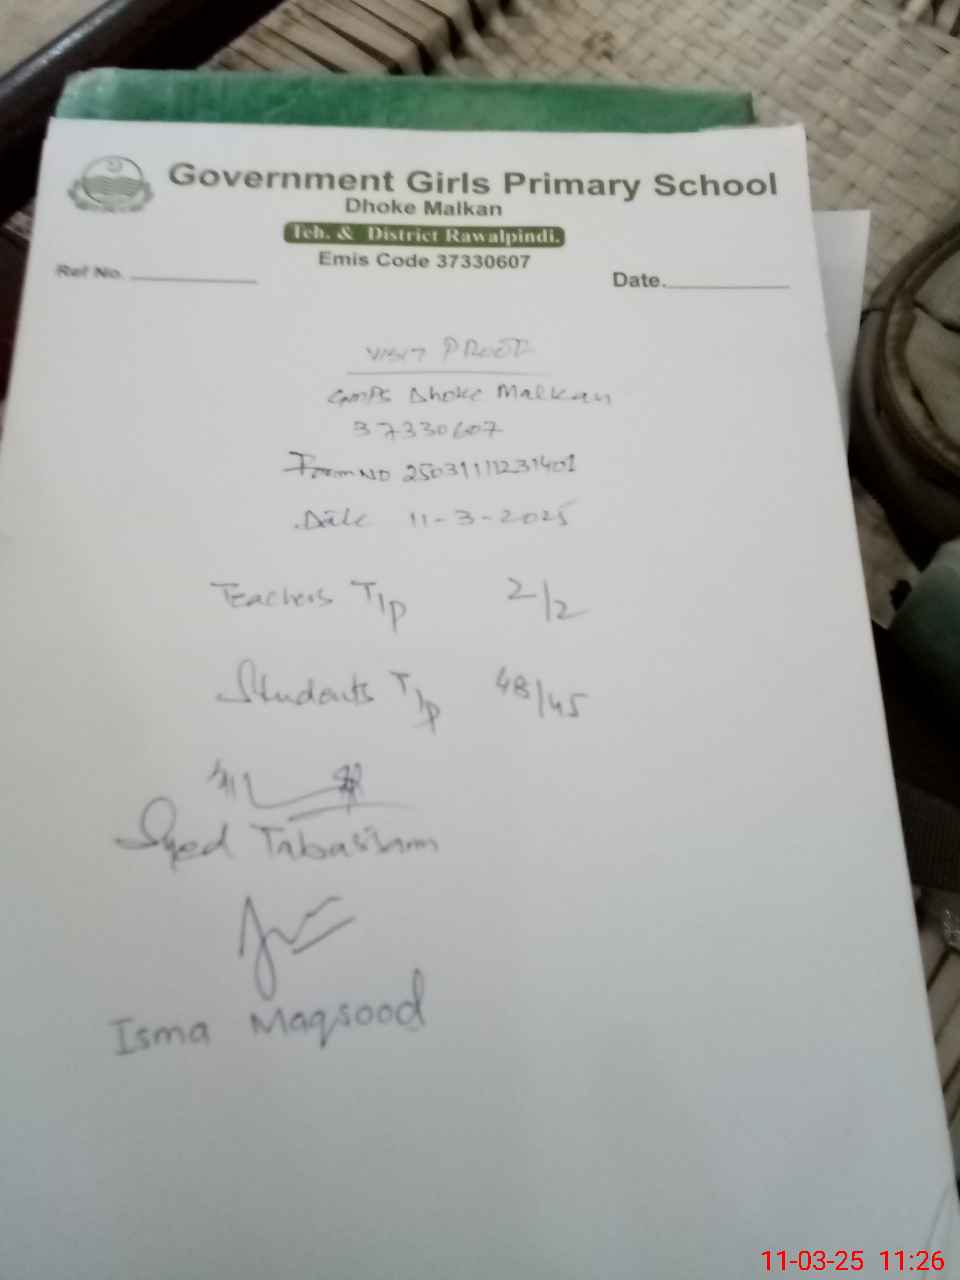 Government Girls Primary School
Dhoke Malkan
Teh. & District Rawalpindi.
Emis Code 37330607
Ref No.
Date.
VISIT PROOF
GMPS Dhoke Malkan
37330607
Form NO 25031111231401
Date 11-3-2025
Teachers T/p 2/2
Students T/p 48/45
Syed Tabassam
Isma Maqsood
11-03-25 11:26